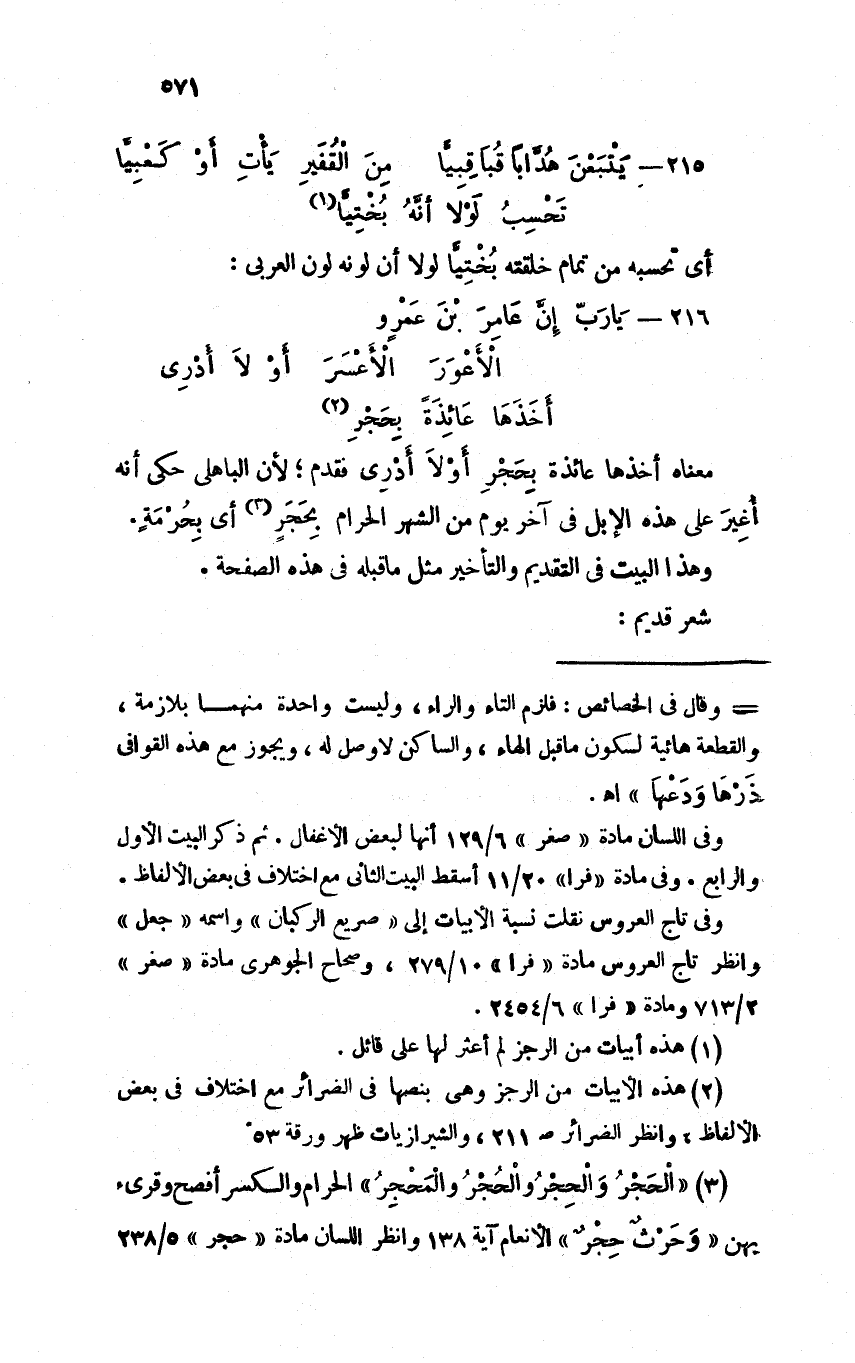 ٥٧١
٢١٥ — يَتْبَعْنَ هُدَّابًا قُبَاقِبِيًّا مِنَ الْقُفَيرِ يَأْتِ أَوْ كَعْبِيًّا
تَحْسِبُ لَوْلا أنَّهُ بُخْتِيًّا(١)
أى تحسبه من تمام خلقته بُخْتِيًّا لولا أن لونه لون العربى :
٢١٦ — يَارَبّ إِنَّ عَامِرَ بْنَ عَمْرٍو
الْأَعْوَرَ الْأَعْسَرَ أَوْ لاَ أَدْرِى
أَخَذَهَا عَائِذَةً بِحَجْرِ(٢)
معناه أخذها عائذة بِحَجْرِ أَوْلاَ أَدْرِى فقدم ؛ لأن الباهلى حكى أنه
أُغِيرَ على هذه الإبل فى آخر يوم من الشهر الحرام بِحَجَرٍ(٣) أى بِحُرْمَةٍ.
وهذا البيت فى التقديم والتأخير مثل ماقبله فى هذه الصفحة .
شعر قديم :
= وقال فى الخصائص : فلزم التاء والراء ، وليست واحدة منهما بلازمة ،
والقطعة هائية لسكون ماقبل الهاء ، والساكن لاوصل له ، ويجوز مع هذه القوافى
ذَرْهَا وَدَعْهَا » اهـ .
وفى اللسان مادة « صغر » ١٢٩/٦ أنها لبعض الأغفال . ثم ذكر البيت الأول
والرابع . وفى مادة «فرا» ١١/٢٠ أسقط البيت الثانى مع اختلاف فى بعض الألفاظ .
وفى تاج العروس نقلت نسبة الأبيات إلى « صريع الركبان » واسمه « جعل »
وانظر تاج العروس مادة « فرا » ٢٧٩/١٠ ، وصحاح الجوهرى مادة « صغر »
٧١٣/٢ ومادة « فرا » ٢٤٥٤/٦ .
(١) هذه أبيات من الرجز لم أعثر لها على قائل .
(٢) هذه الأبيات من الرجز وهى بنصها فى الضرائر مع اختلاف فى بعض
الألفاظ ، وانظر الضرائر صـ ٢١١ ، والشيرازيات ظهر ورقة ٥٣
(٣) «الْحَجْرُ وَالْحِجْرُ والْحُجْرُ والْمَحْجِرُ» الحرام والكسر أفصح وقرىء
بهن « وَحَرْثٌ حِجْرٌ » الأنعام آية ١٣٨ وانظر اللسان مادة « حجر » ٢٣٨/٥